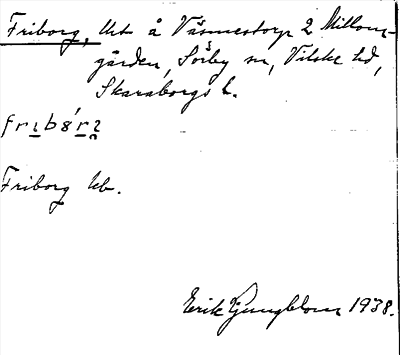 Friborg, lht å Väsmestorp 2 Mellom-
gården, Sörby sn, Vilske hd,
Skaraborgs l.
Friborg kb.
Erik Ljungblom 1938.